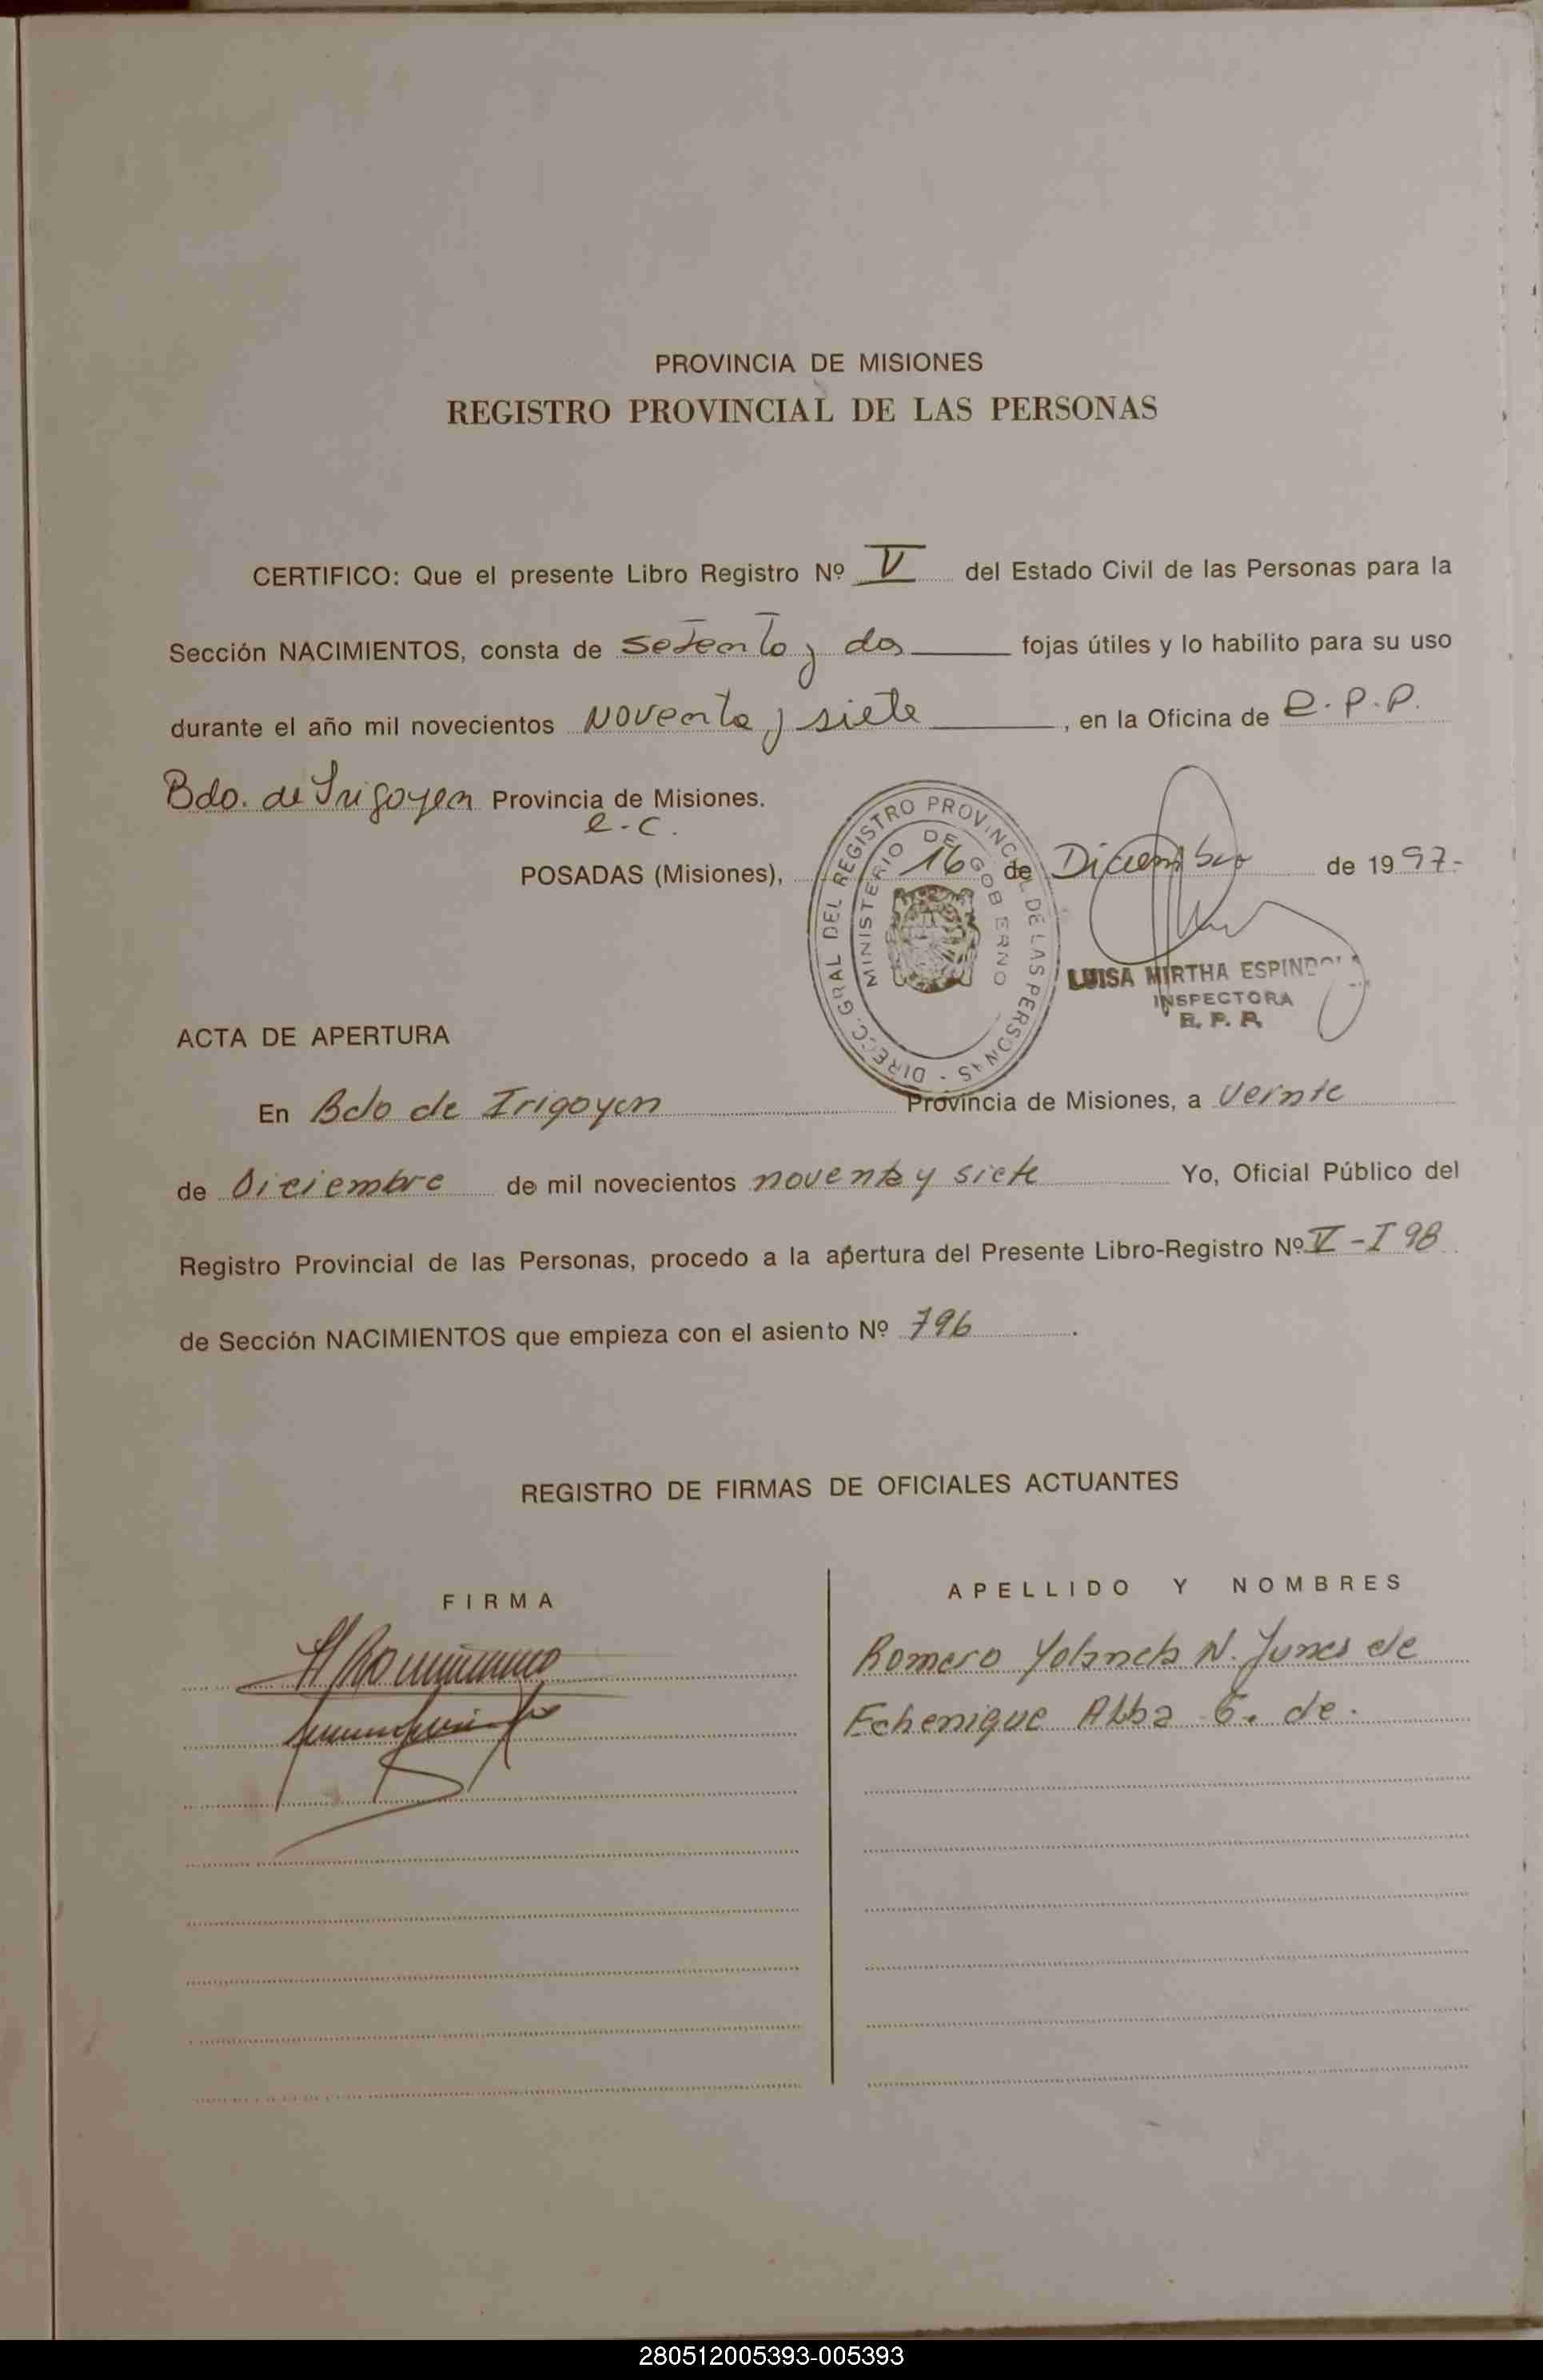 PROVINCIA DE MISIONES
REGISTRO PROVINCIAL DE LAS PERSONAS
CERTIFICO: Que el presente Libro Registro Nº V del Estado Civil de las Personas para la
Sección NACIMIENTOS, consta de setenta y dos fojas útiles y lo habilito para su uso
durante el año mil novecientos noventa y siete, en la Oficina de R.P.P.
Bdo. de Irigoyen Provincia de Misiones.
e.c.
POSADAS (Misiones), 16 de Diciembre de 1997-
DIRECC. GRAL DEL REGISTRO PROVINCIAL DE LAS PERSONAS -
MINISTERIO DE GOBIERNO
LUISA MIRTHA ESPINDOLA
INSPECTORA
R. P. P.
ACTA DE APERTURA
En Bdo de Irigoyen Provincia de Misiones, a veinte
de Diciembre de mil novecientos noventa y siete Yo, Oficial Público del
Registro Provincial de las Personas, procedo a la apertura del Presente Libro-Registro Nº V - I 98
de Sección NACIMIENTOS que empieza con el asiento Nº 796.
REGISTRO DE FIRMAS DE OFICIALES ACTUANTES
FIRMA
APELLIDO Y NOMBRES
Romero Yolanda N. Junes de
Echenique Alba G. de.
280512005393-005393